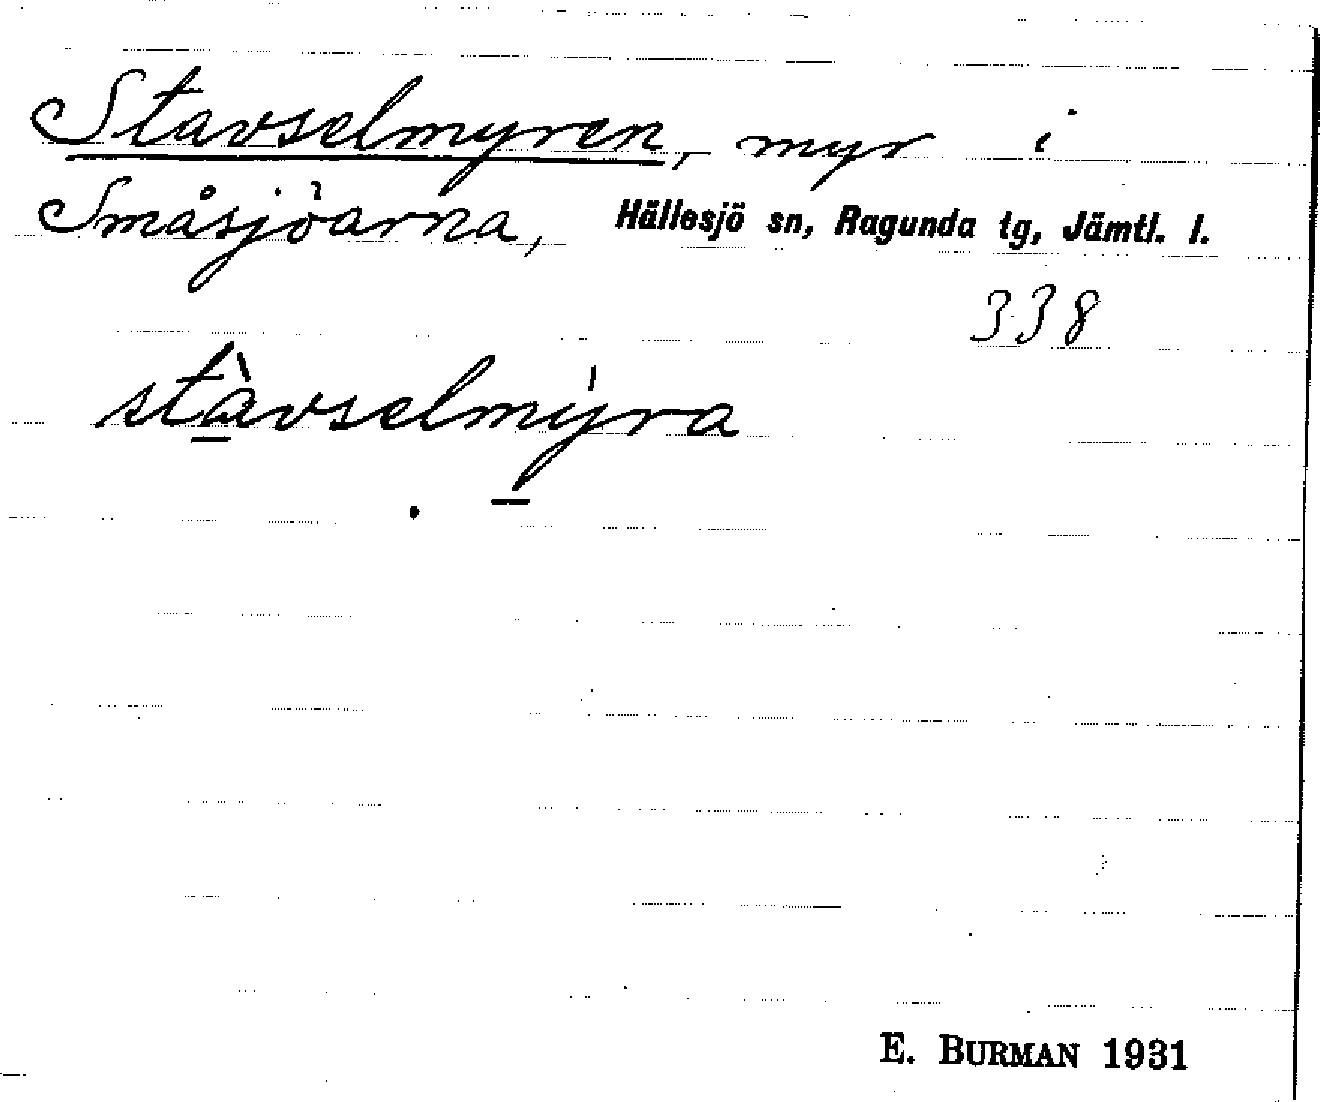 Stavselmyren, myr i
Småsjöarna, Hällesjö sn, Ragunda tg, Jämtl. l.
338
stàvselmýra
E. BURMAN 1931